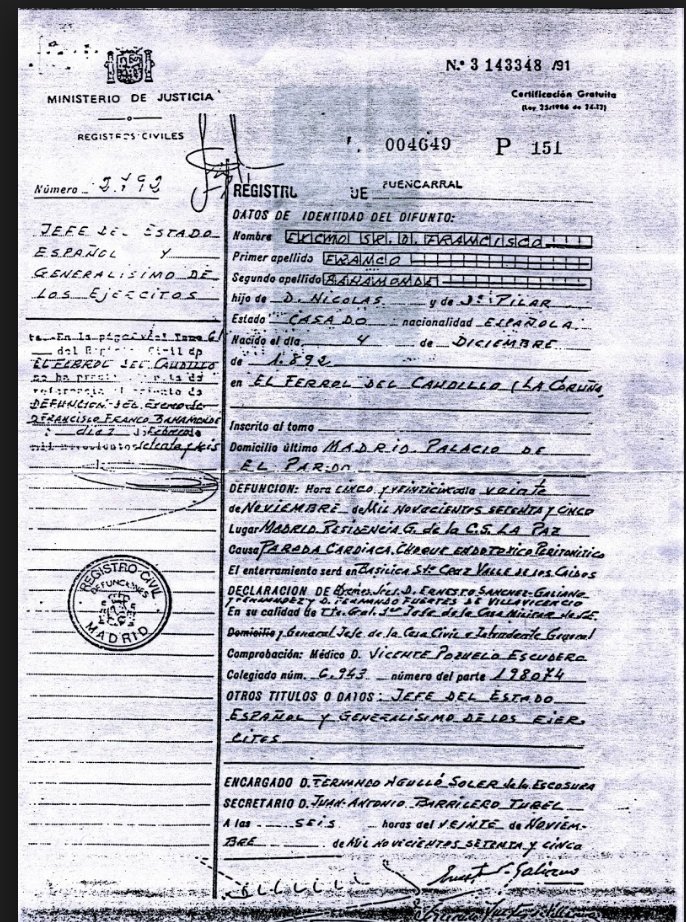 N.º 3 143348 /91
MINISTERIO DE JUSTICIA
Certificación Gratuita
(Ley 25/1986 de 24-12)
REGISTROS CIVILES
004649 P 151
Número
REGISTRO DE FUENCARRAL
DATOS DE IDENTIDAD DEL DIFUNTO:
JEFE DEL ESTADO
ESPAÑOL Y
GENERALISIMO DE
LOS EJERCITOS
Nombre EXCMO SR. D. FRANCISCO
Primer apellido FRANCO
Segundo apellido BAHAMONDE
hijo de D. NICOLAS y de Dª PILAR
Estado CASADO nacionalidad ESPAÑOLA
Nacido el día 4 de DICIEMBRE
de 1.892
en EL FERROL DEL CAUDILLO (LA CORUÑA)
En la página Tomo 61
del Registro Civil de
EL FERROL DEL CAUDILLO
DEFUNCION DEL EXCMO. SR.
D FRANCISCO FRANCO BAHAMONDE
diez
mil novecientos setenta y seis
Inscrito al tomo
Domicilio último MADRID. PALACIO DE
EL PARDO
DEFUNCION: Hora CINCO Y VEINTICINCO día veinte
de NOVIEMBRE de MIL NOVECIENTOS SETENTA Y CINCO
Lugar MADRID RESIDENCIA G. de la C.S. LA PAZ
Causa PARADA CARDIACA. CHOQUE ENDOTOXICO PERITONITICO
El enterramiento será en BASILICA Sta CRUZ VALLE DE LOS CAIDOS
DECLARACION DE Excmos Sres. D. ERNESTO SANCHEZ-GALIANO
Y FERNANDEZ Y D. FERNANDO FUERTES DE VILLAVICENCIO
En su calidad de Tte. Gral. Jefe de la Casa Militar de S.E.
Domicilio y General Jefe de la Casa Civil e Intendente General
Comprobación: Médico D. VICENTE POZUELO ESCUDERO
Colegiado núm. 6.943 número del parte 198074
OTROS TITULOS O DATOS: JEFE DEL ESTADO
ESPAÑOL Y GENERALISIMO DE LOS EJER-
CITOS
REGISTRO CIVIL
DEFUNCIONES
MADRID
ENCARGADO D. FERNANDO AGULLÓ SOLER de la ESCOSURA
SECRETARIO D. JUAN-ANTONIO BARRILERO TUREL
A las SEIS horas del VEINTE de NOVIEM-
BRE de MIL NOVECIENTOS SETENTA Y CINCO